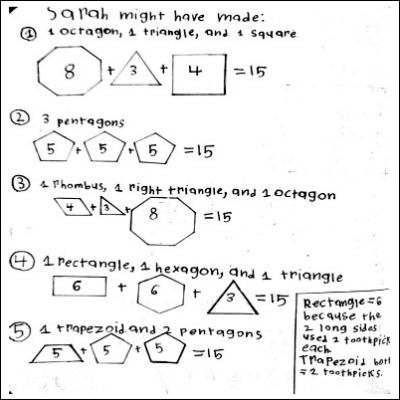 Sarah might have made:
① 1 octagon, 1 triangle, and 1 square
8 + 3 + 4 = 15
② 3 pentagons
5 + 5 + 5 = 15
③ 1 rhombus, 1 right triangle, and 1 octagon
4 + 3 + 8 = 15
④ 1 rectangle, 1 hexagon, and 1 triangle
6 + 6 + 3 = 15
⑤ 1 trapezoid and 2 pentagons
5 + 5 + 5 = 15
Rectangle = 6
because the
2 long sides
used 2 toothpick
each.
Trapezoid bott
= 2 toothpicks.